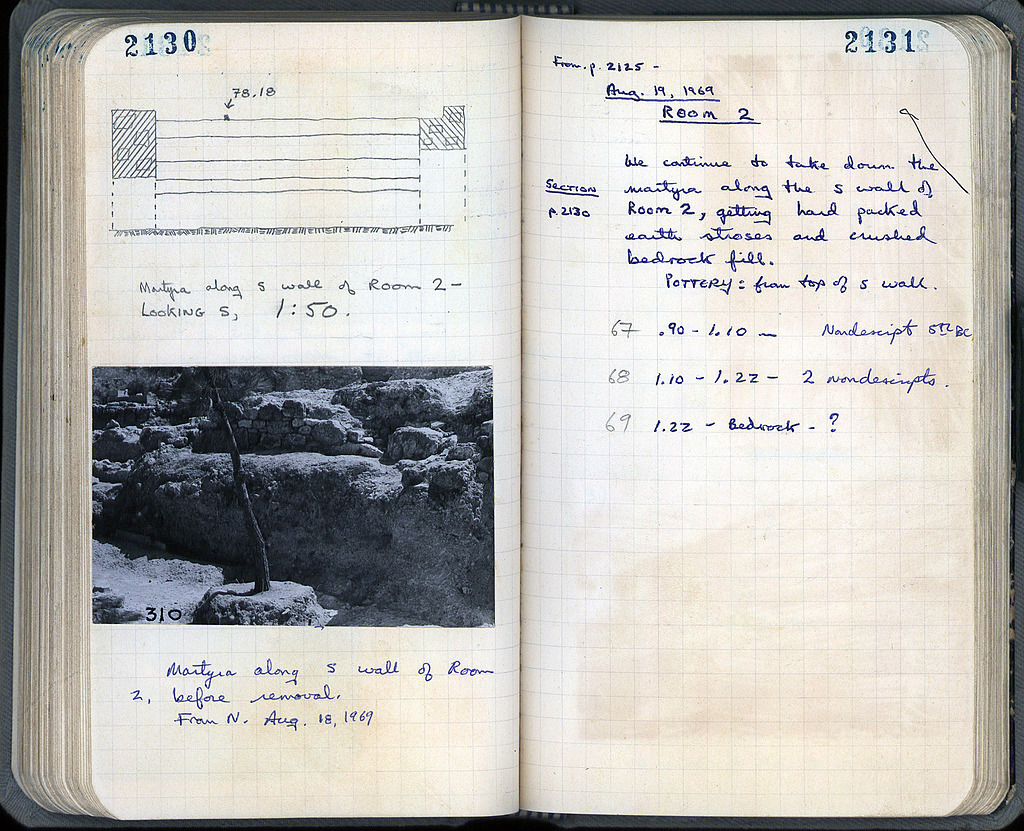 2130
78.18
Martyra along S wall of Room 2 –
Looking S, 1:50.
310
Martyra along S wall of Room
2, before removal.
From N. Aug. 18, 1969
2131
From p. 2125 –
Aug. 19, 1969
Room 2
We continue to take down the
Section
martyra along the S wall of
p. 2130
Room 2, getting hard packed
earth stroses and crushed
bedrock fill.
Pottery: from top of S wall.
67 .90 – 1.10 – Nondescript 5th BC
68 1.10 – 1.22 – 2 nondescripts.
69 1.22 – Bedrock – ?